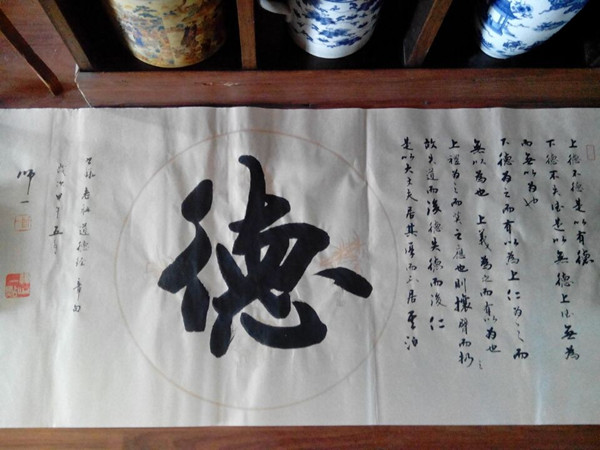 上德不德是以有德
下德不失德是以無德上德無為
而無以為也
下德為之而有以為上仁為之而
無以為也上義為之而有以為也
上禮為之而莫之應也則攘臂而扔之
故失道而後德失德而後仁
是以大丈夫居其厚而不居其泊
德
老子道德經章句
师一